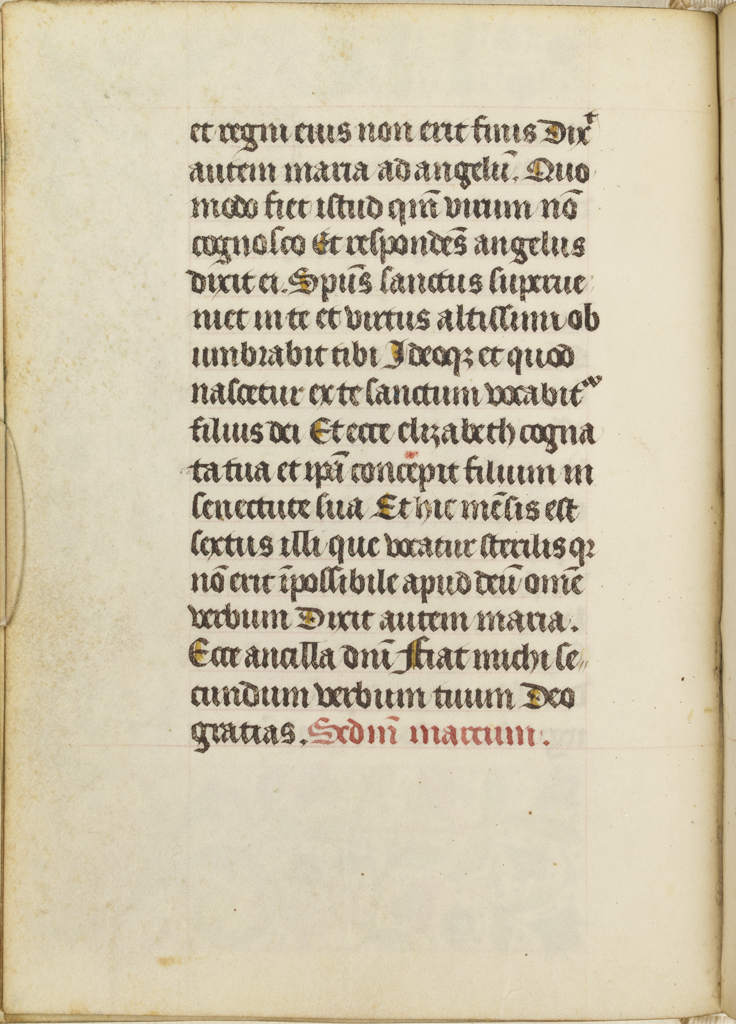 et regni eius non erit finis Dixᵗ
autem maria ad angelū. Quo
modo fiet istud qm̄ virum nō
cognosco Et respondēs angelus
dixit ei. Spūs sanctus superue
niet in te et virtus altissimi ob
umbrabit tibi Ideoqꝫ et quod
nascetur ex te sanctum vocabit᷑
filius dei Et ecce elizabeth cogna
ta tua et ip̄a concepit filium in
senectute sua Et hic mēsis est
sextus illi que vocatur sterilis qꝛ
nō erit īpossibile apud deū om̄e
verbum Dixit autem maria.
Ecce ancilla dn̄i Fiat michi se⸗
cundum verbum tuum Deo
gratias. Scd̄m marcum.